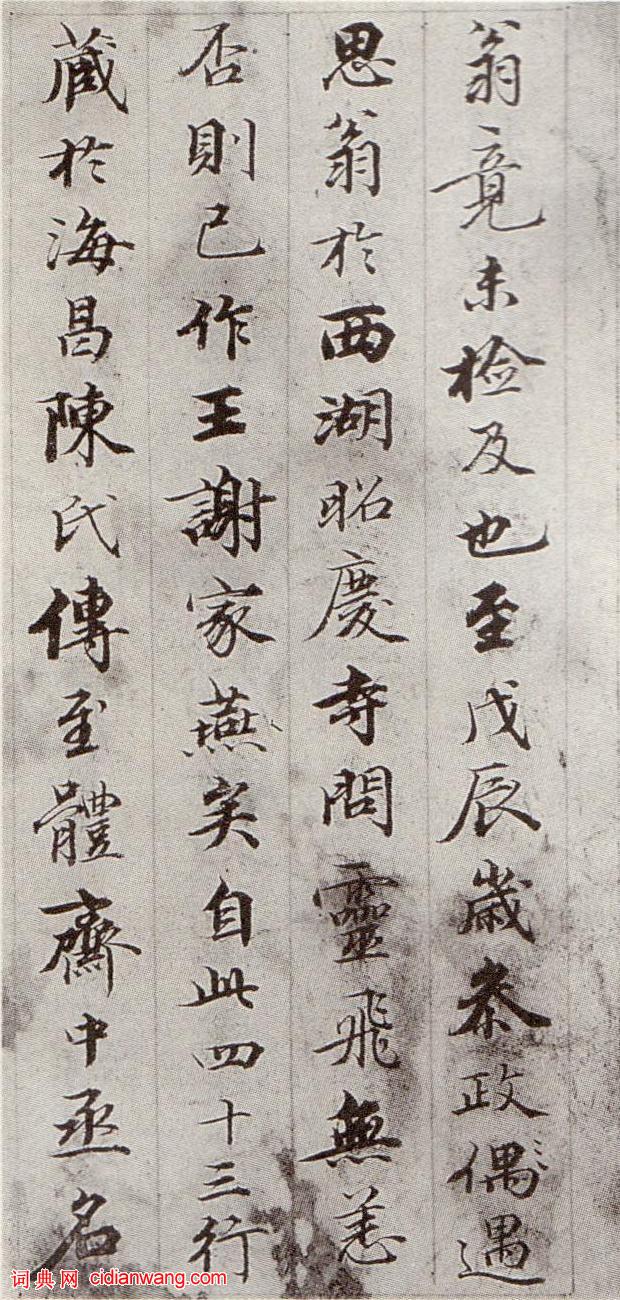 翁竟未檢及也至戊辰歲叅政偶遇
思翁於西湖昭慶寺問靈飛無恙
否則已作王謝家燕矣自此四十三行
藏於海昌陳氏傳至體齋中丞名
词典网 cidianwang.com